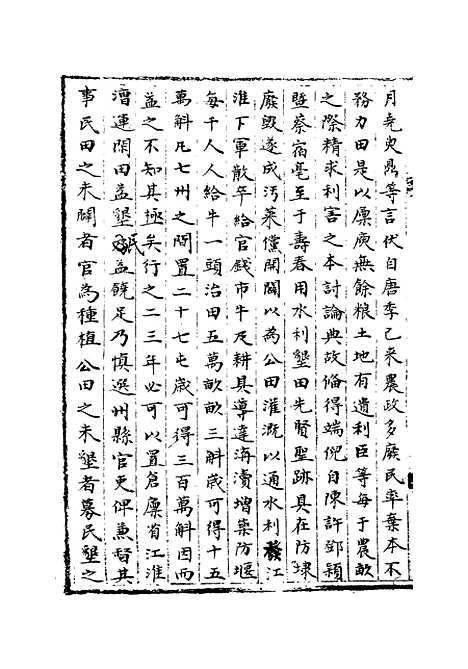 月堯叟鼎等言伏自唐季已来農政多廢民率棄本不
務力田是以廩庾無餘粮土地有遺利臣等每于農畝
之際精求利害之本討論典故備得端倪自陳許鄧潁
暨蔡宿亳至于壽春用水利墾田先賢聖跡具在防埭
廢毀遂成汚萊儻開闢以為公田灌溉以通水利發江
淮下軍散卒給官錢市牛及耕具導達溝瀆增築防堰
每千人人給牛一頭治田五萬畝畝三斛歳可得十五
萬斛凡七州之間置二十七屯歳可得三百萬斛因而
益之不知其極矣行之二三年必可以置倉廩省江淮
漕運閑田益墾民益饒足乃慎選州縣官吏俾兼督其
事民田之未闢者官為種植公田之未墾者募民墾之